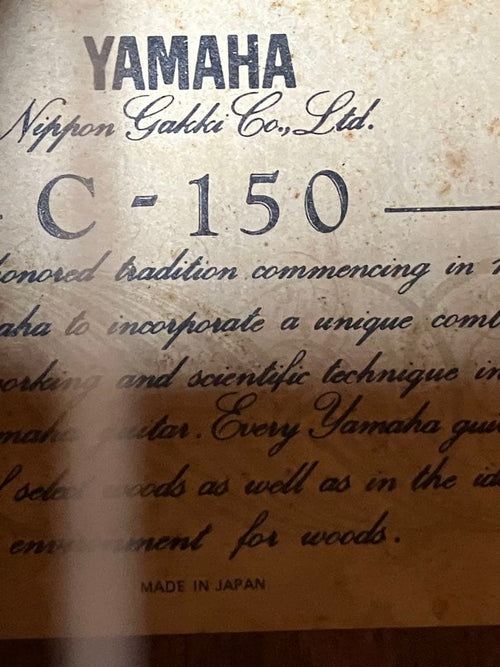 YAMAHA
Nippon Gakki Co., Ltd.
C-150
honored tradition commencing in
to incorporate a unique
and scientific technique in
guitar. Every Yamaha
select woods as well as in the
environment for woods.
MADE IN JAPAN